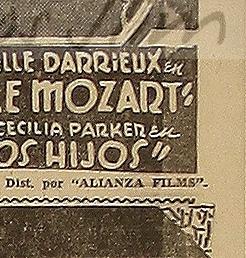 ELLE DARRIEUX en
LE MOZART"
CECILIA PARKER en
OS HIJOS"
Dist. por "ALIANZA FILMS"-